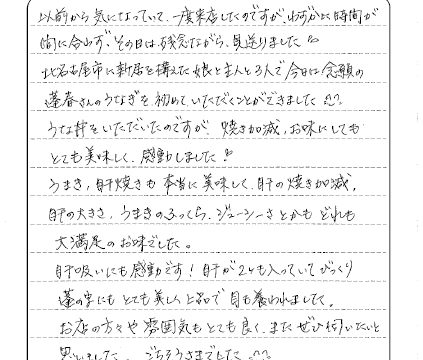 以前から気になっていて、一度来店したのですが、わずかに時間が
間に合わず、その日は残念ながら、見送りました
北名古屋市に新居を構えた娘と主人と3人で今日は念願の
蓬春さんのうなぎを、初めていただくことができました♡♡
うな丼をいただいたのですが、焼き加減、お味にしても
とても美味しく、感動しました
うまき、肝焼きも本当に美味しく、肝の焼き加減、
肝の大きさ、うまきのふっくら、ジューシーさとかも どれも
大満足のお味でした。
肝吸いにも感動です！肝が2つも入っていてびっくり
蓬の字にも とても美しく上品で 目も養われました。
お店の方々や 雰囲気も とても良く、また ぜひ伺いたいと
思いました。 ごちそうさまでした♡♡